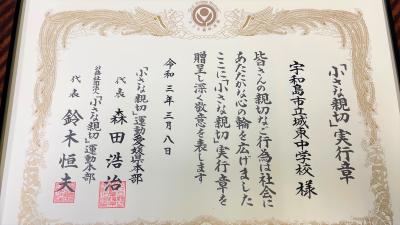 「小さな親切」実行章
宇和島市立城東中学校 様
皆さんの親切なご行為は社会に
あたたかな心の輪を広げました
ここに「小さな親切」実行章を
贈呈し深く敬意を表します
令和三年三月八日
「小さな親切」運動愛媛県本部
代表 森田浩治
公益社団法人「小さな親切」運動本部
代表 鈴木恒夫